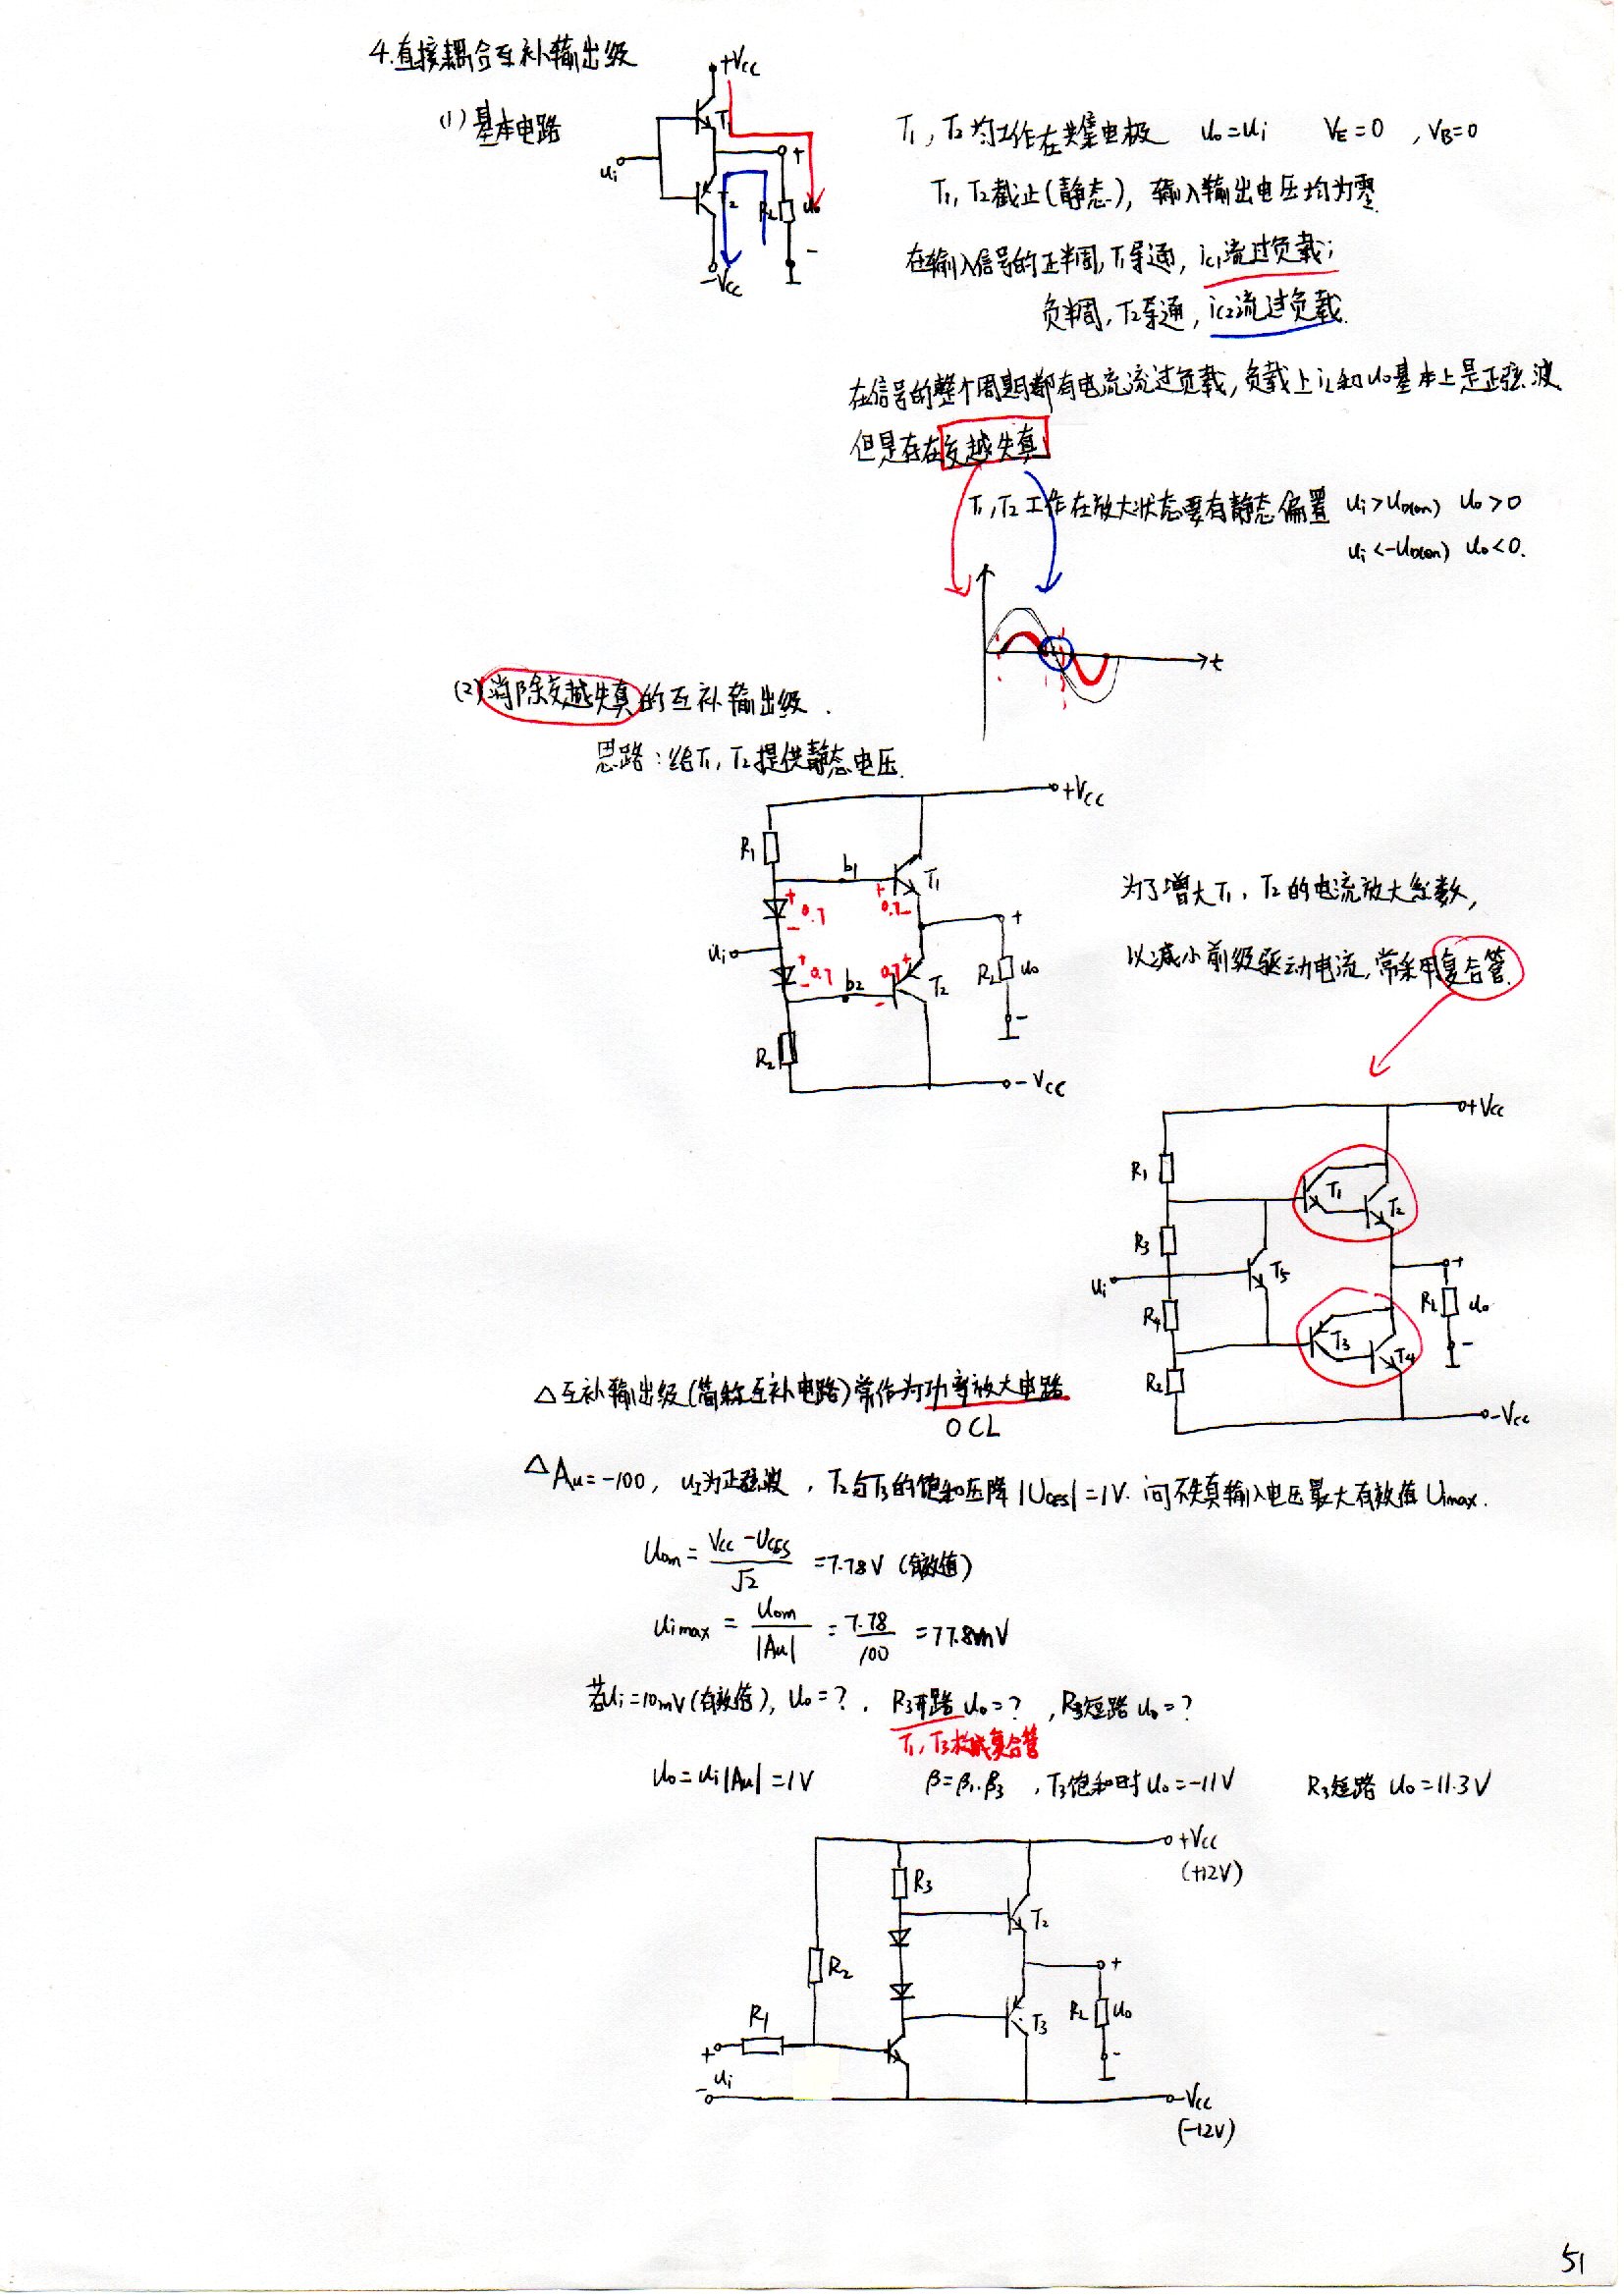 4.直接耦合互补输出级
(1)基本电路
+Vcc
T1
ui
+
T2
RL
uo
-
-Vcc
T1，T2均工作在共集电极 uo=ui VE=0，VB=0
T1，T2截止(静态)，输入输出电压均为零
在输入信号的正半周，T1导通，ic1流过负载；
负半周，T2导通，ic2流过负载.
在信号的整个周期都有电流流过负载，负载上iL和uo基本上是正弦波
但是存在交越失真
T1，T2工作在放大状态要有静态偏置 ui>UD(on) uo>0
ui<-UD(on) uo<0.
t
(2)消除交越失真的互补输出级.
思路：给T1，T2提供静态电压.
+Vcc
R1
b1
T1
+
0.7
-
+
0.7
-
ui
+
0.7
-
0.7
+
-
b2
T2
+
RL
uo
-
R2
-Vcc
为了增大T1，T2的电流放大系数，
以减小前级驱动电流，常采用复合管.
+Vcc
R1
T1
T2
R3
ui
T5
+
R4
RL
uo
-
T3
T4
R2
-Vcc
△互补输出级(简称互补电路)常作为功率放大电路
OCL
△Au=-100，uI为正弦波，T2与T3的饱和压降|UCES|=1V. 问不失真输入电压最大有效值Uimax.
Uom=(Vcc-UCES)/√2=7.78V(有效值)
Uimax=Uom/|Au|=7.78/100=77.8mV
若Ui=10mV(有效值)，Uo=？. R3开路Uo=？，R3短路Uo=？
T1，T3构成复合管
Uo=Ui|Au|=1V β=β1·β3，T3饱和时Uo=-11V R3短路 Uo=11.3V
+Vcc
(+12V)
R3
T2
R2
+
R1
T3
RL
uo
-
+
ui
-
-Vcc
(-12V)
51